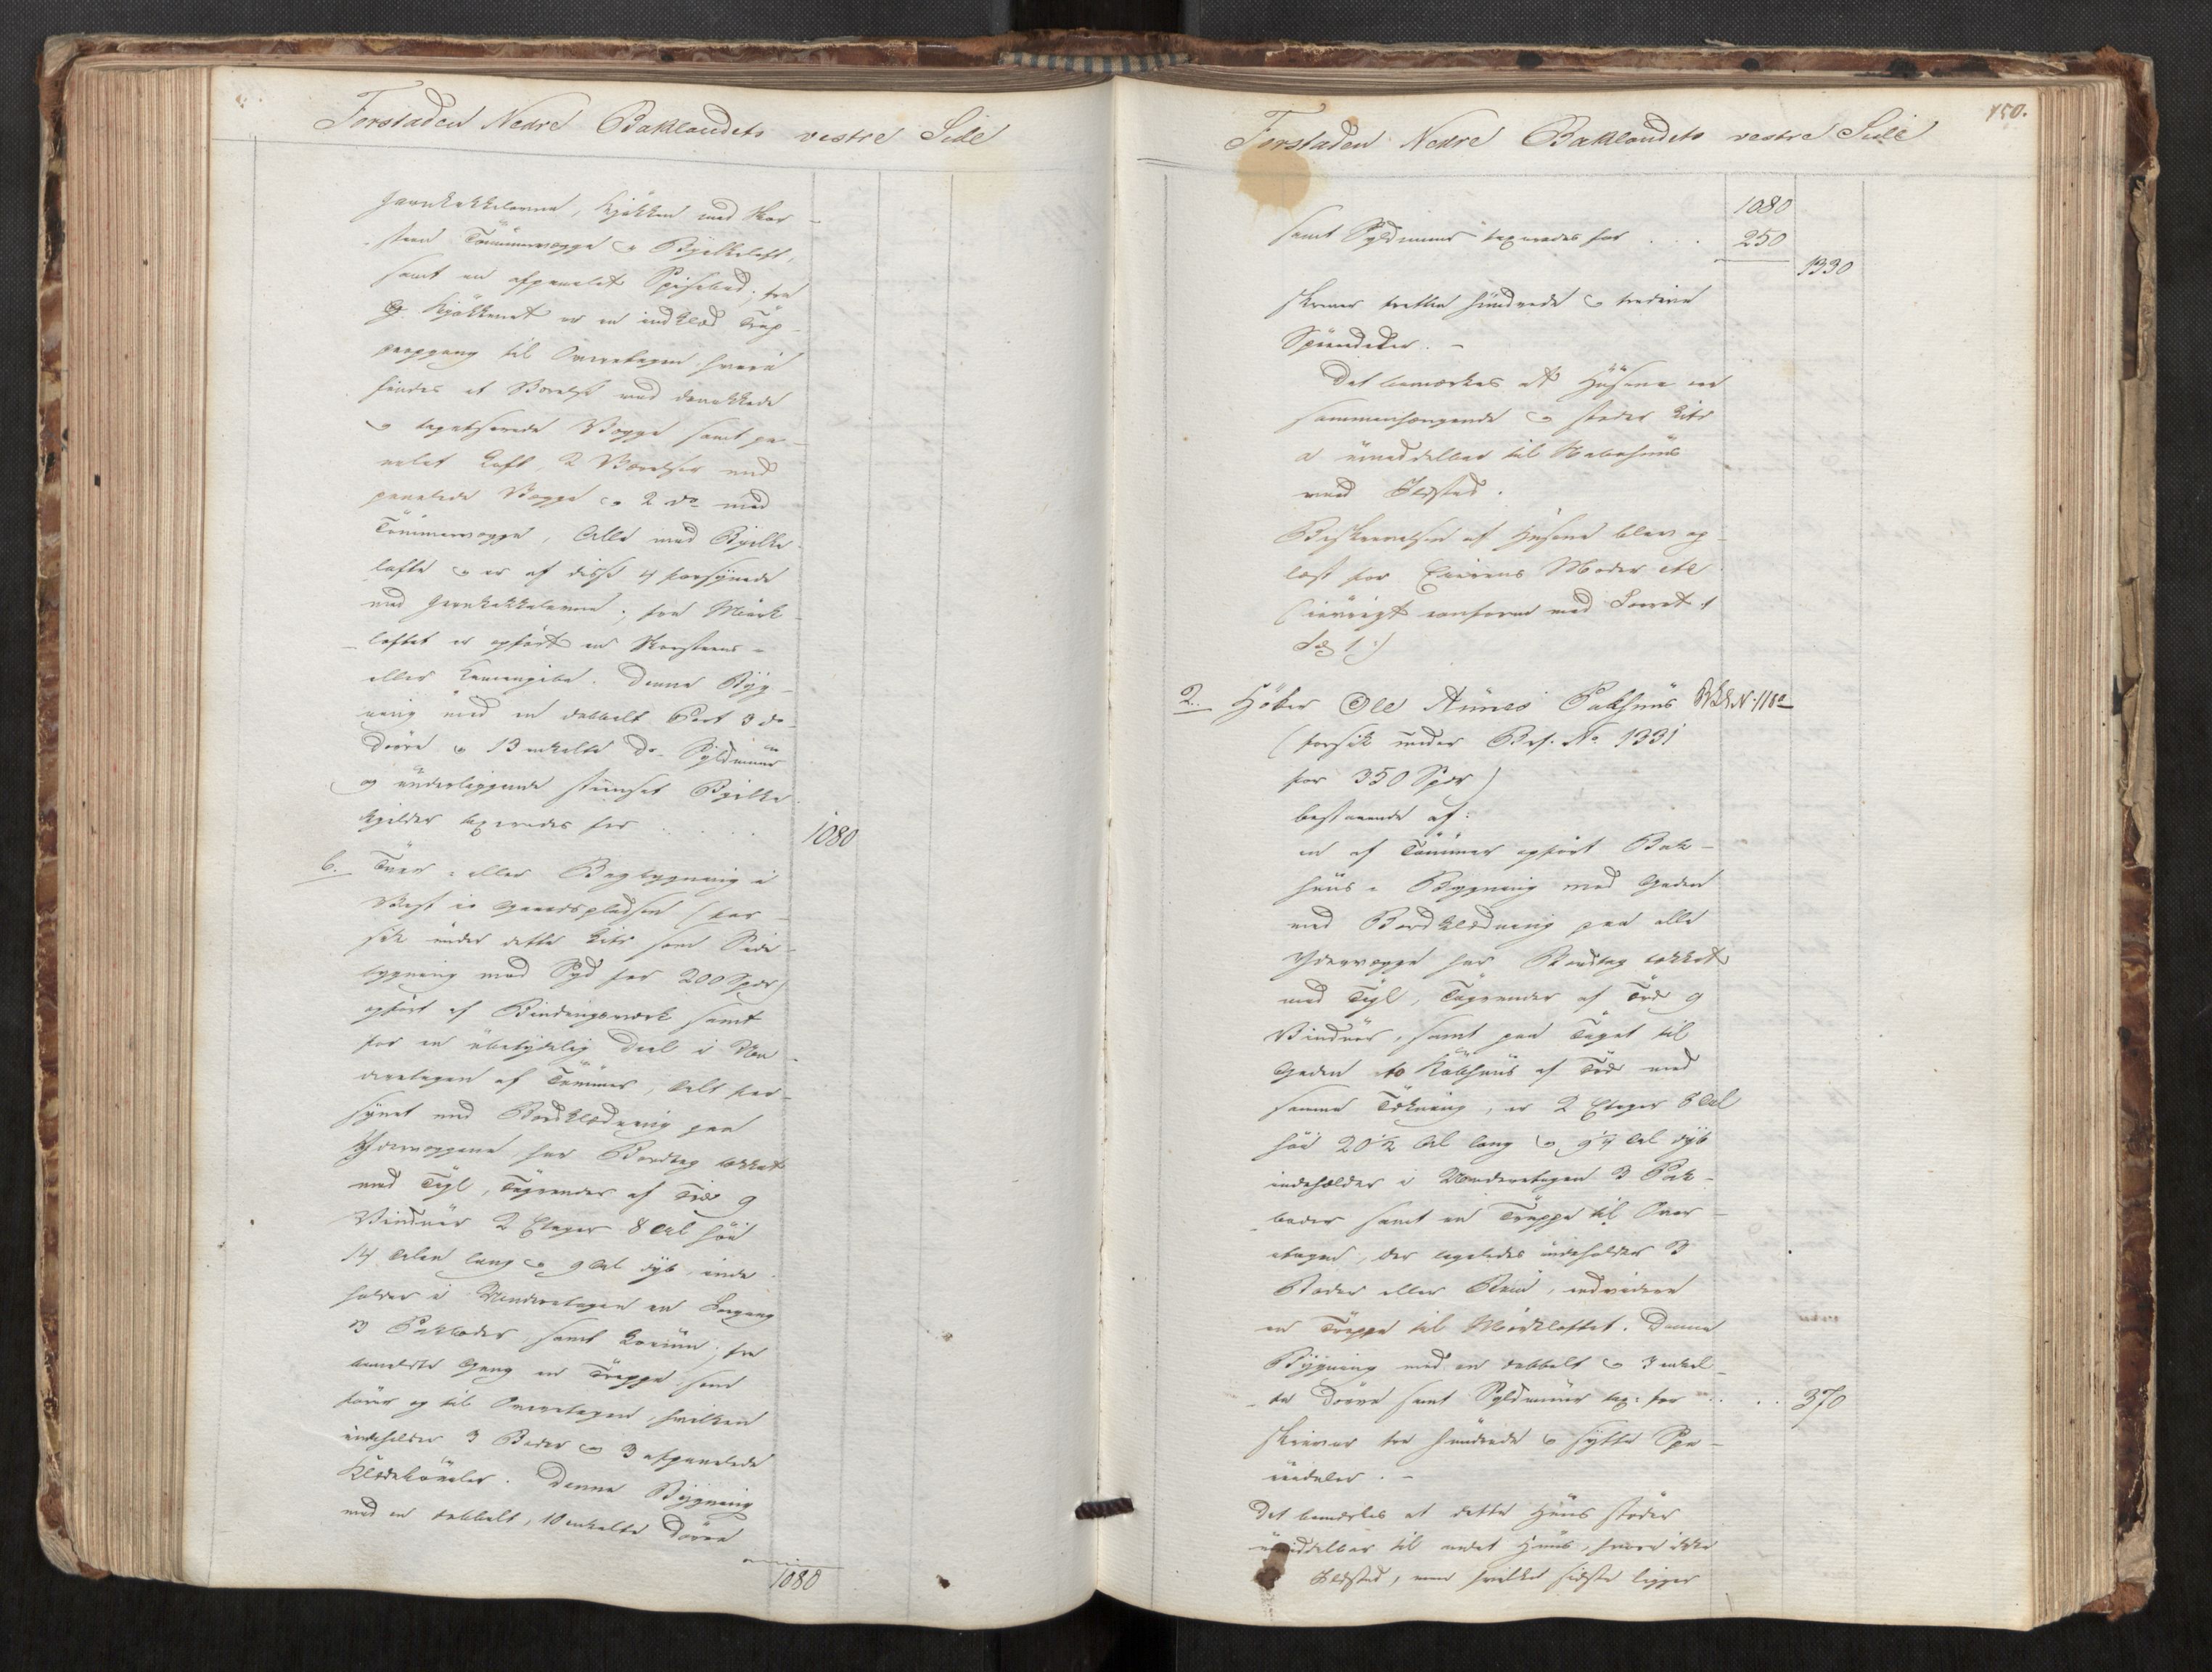 Forstaden Nedre Baklandets vestre Side
Jernkakkelovne, Kjøkken med Skor-
steen Tømmervægge og Bjelkeloft,
samt en afpanelet Spisebod; fra
Kjøkkenet er en indklæd Trap-
peopgang til Overetagen hvori
findes et Værelse med
og Vægge samt pa-
nelet Loft, 2 Værelser med
panelede Vægge og 2 do med
Tømmervægge, Alle med Bjelke-
lofte og er af disse 4 forsynede
med Jernkakkelovne; fra Mørk-
loftet er opført en Skorsteens-
eller . Denne Byg-
ning med en dobbelt Port 3 do
Dørre og 13 enkelte do Fyldmuur
og underliggende Bjelke-
kjelder taxeredes for . . . . 1080
b. Tver- eller Bagbygning i
Vest i Gaardspladsen (for-
sik under dette Litr som Side-
bygning mod Syd for 200 Spdr)
opført af Bindingsværk samt
for en ubetydelig Deel i Un-
deretagen af Tømmer, Alt for-
synet med Bordklædning paa
Ydervæggene har Bordtag tækket
med Tegl, Tagrender af Træ og
Vinduer 2 Etager 8 Al høi
14 Alen lang og 9 Al dyb, inde-
holder i Underetagen en Forgang
3 Pakboder samt ; fra
bemeldte Gang en Trappe som
fører op til Overetagen, hvilken
indeholder 3 Boder og 3 afpanelede
Klædekamre. Denne Bygning
med en dobbelt, 10 enkelte Dørre
1080
150.
Forstaden Nedre Baklandets vestre Side
1080
samt Fyldmuur taxeredes for . . . 250
1330
skriver tretten hundrede og tredive
Speciedaler. -
Det bemærkes at Husene ere
sammenhængende og støder Litr
a umiddelbar til Nabohuus
med Ildsted.
Beskrivelsen af Husene blev op-
læst for Eierens Moder etc
(iøvrigt conform med Torvet
1)
2. Høker Ole Aunes Pakhuus N. 118a
(forsik under Brf. No 1331
for 350 Spdr)
bestaaende af:
en af Tømmer opført Pak-
huus-Bygning mod Gaden
med Bordklædning paa alle
Ydervægge har Bordtag tækket
med Tegl, Tagrender af Træ og
Vinduer, samt paa Taget til
Gaden to af Træ med
samme Tækning, er 2 Etager 8 Al
høi 20 1/2 Al lang og 9 1/4 Al dyb
indeholder i Underetagen 3 Pak-
boder samt en Trappe til Over-
etagen, der ligeledes indeholder 3
Boder eller Rum, endvidere
en Trappe til Mørkloftet. Denne
Bygning med en dobbelt og 3 enkel-
te Dørre samt Fyldmuur tax: for . . . . 370
skriver tre hundrede og sytti Spe-
ciedaler. -
Det bemærkes at dette Huus støder
umiddelbar til andet Huus, hvori ikke
Ildsted, men hvilket sidste ligger